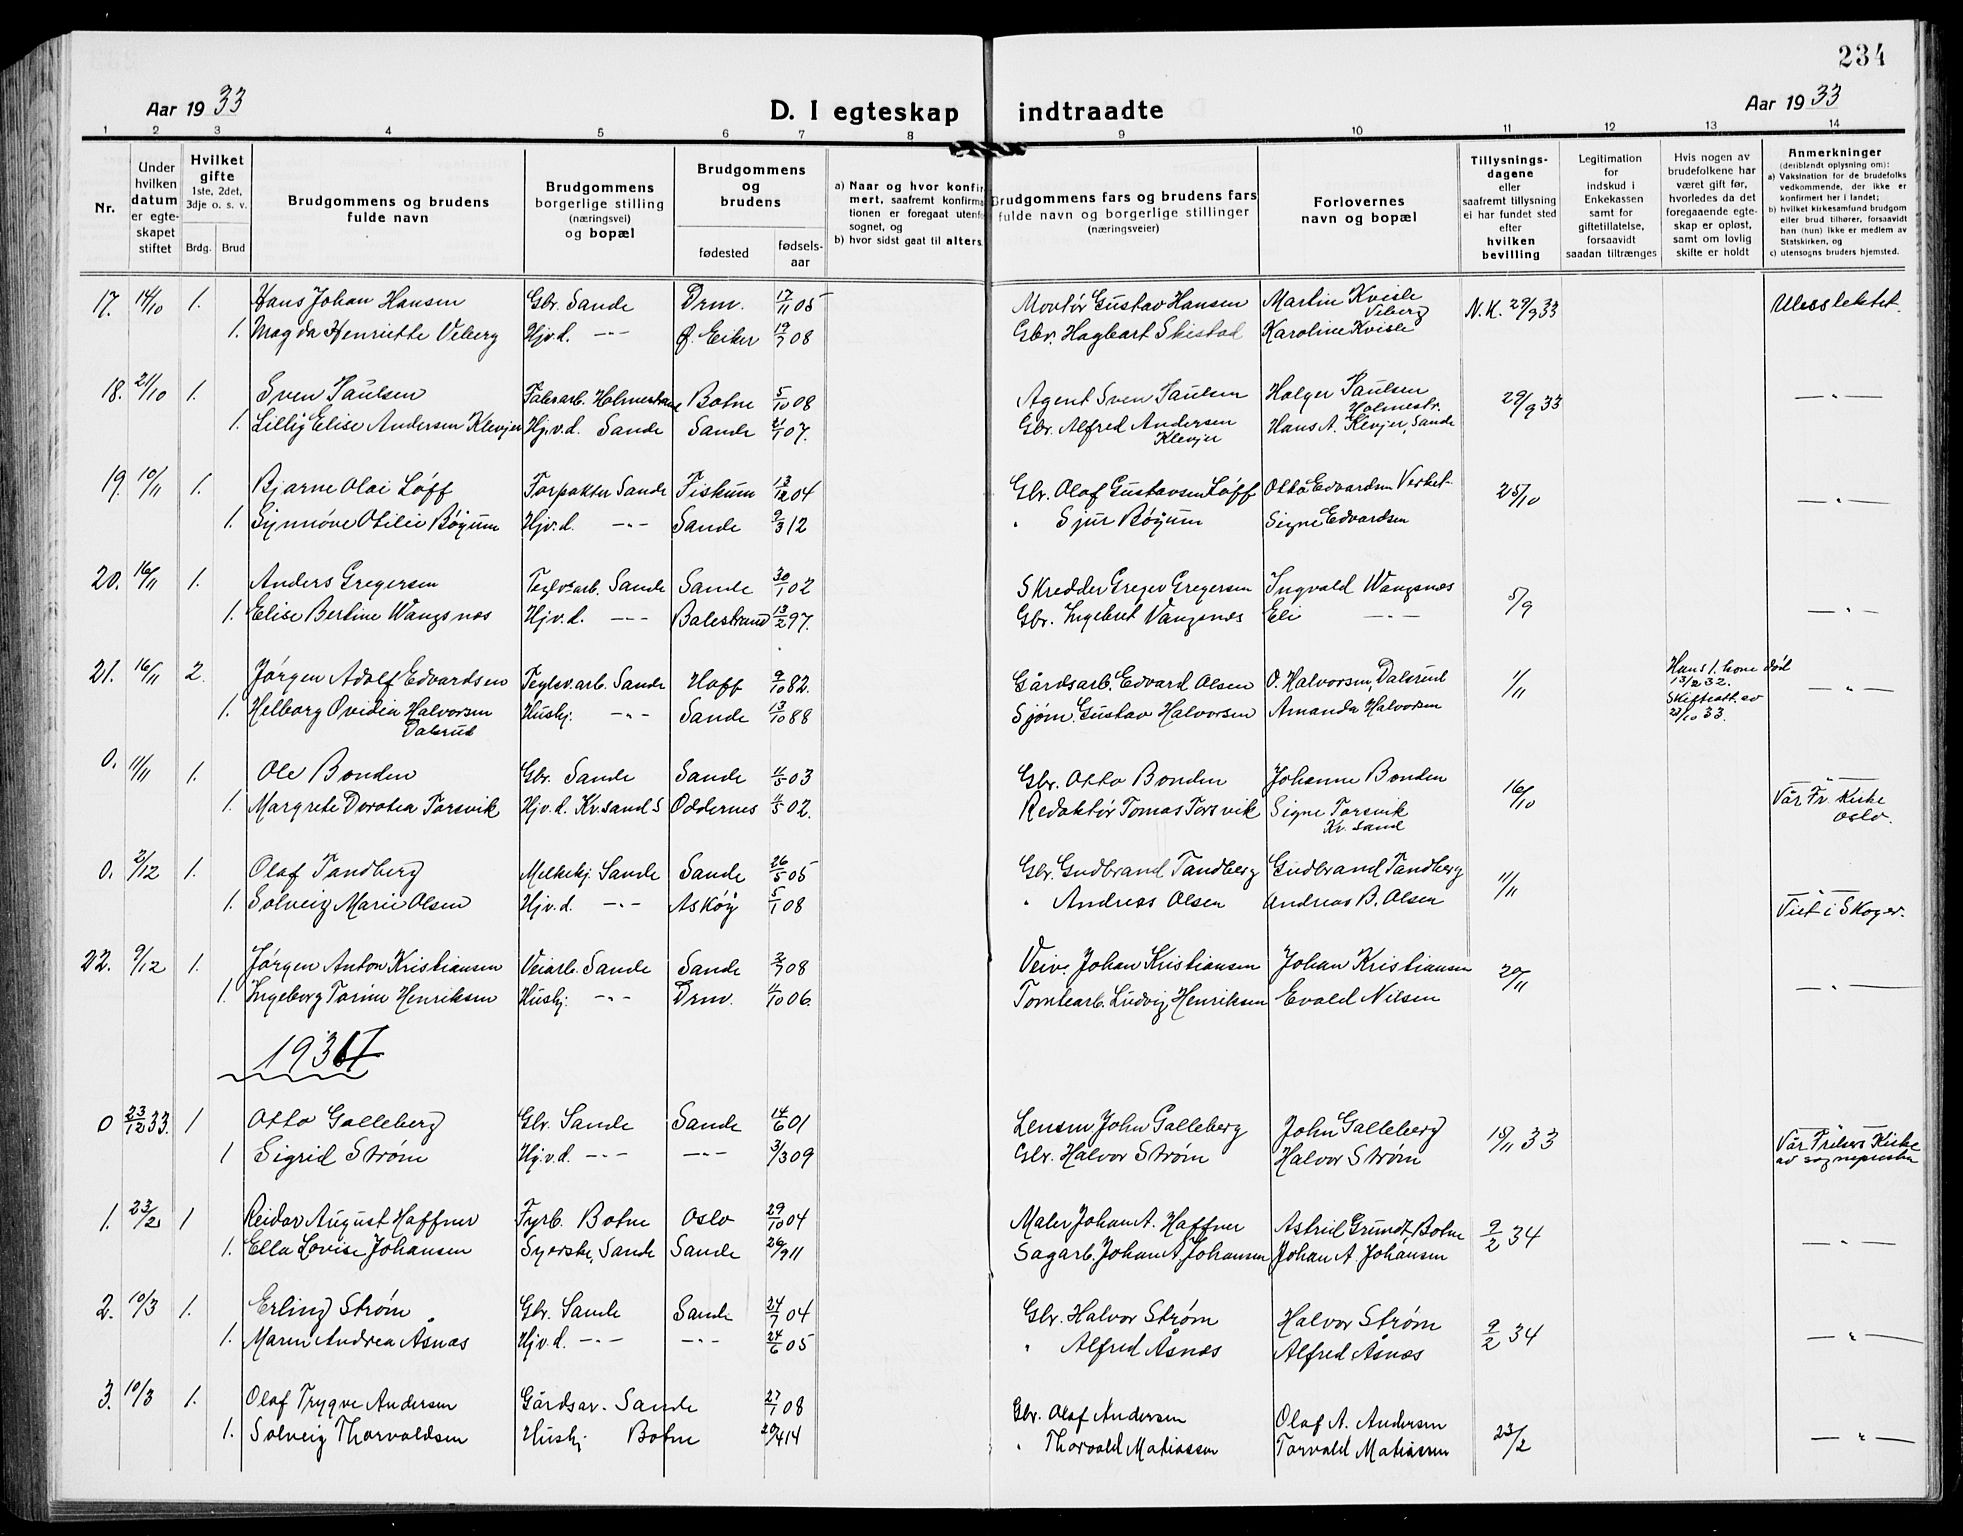 234
Aar 1933
D. I egteskap indtraadte
Aar 1933
1 2 3 4 5 6 7 8 9 10 11 12 13 14
Nr.
Under hvilken datum er egte-skapet stiftet
Hvilket gifte 1ste, 2det, 3dje o. s. v.
Brdg. Brud
Brudgommens og brudens fulde navn
Brudgommens borgerlige stilling (næringsvei) og bopæl
Brudgommens og brudens
fødested fødsels-aar
a) Naar og hvor konfirmert, saafremt konfirmationen er foregaat utenfor sognet, og
b) hvor sidst gaat til alters.
Brudgommens fars og brudens fars fulde navn og borgerlige stillinger (næringsveier)
Forlovernes navn og bopæl
Tillysnings-dagene eller saafremt tillysning ei har fundet sted efter hvilken bevilling
Legitimation for indskud i Enkekassen samt for giftetillatelse, forsaavidt saadan tiltrænges
Hvis nogen av brudefolkene har været gift før, hvorledes da det foregaaende egte-skap er opløst, samt om lovlig skifte er holdt
Anmerkninger (deriblendt oplysning om):
a) Vaksination for de brudefolks vedkommende, der ikke er konfirmert her i landet;
b) hvilket kirkesamfund brudgom eller brud tilhører, forsaavidt han (hun) ikke er medlem av Statskirken, og
c) utensogns bruders hjemsted.
17. 14/10 1. Hans Johan Hansen Gbr. Sande Drm. 17/11 05 Montør Gustav Hansen Martin Kvisle N.K. 29/9 33 Ubesslektet.
1. Magda Henriette Veberg Hjv.d. -"- Ø. Eiker 19/7 08 Gbr. Hagbart Skistad Veberg Karoline Kvisle
18. 21/10 1. Sven Paulsen Fabrarb. Holmestrand Botne 5/10 08 Agent Sven Paulsen Holger Paulsen Holmestr. 29/9 33 -"-
1. Lilly Elise Andersen Klevjer Hjv.d. Sande Sande 21/1 07. Gbr. Alfred Andersen Klevjer Hans A. Klevjer, Sande
19. 10/11 1. Bjarne Olai Løff Forpakter Sande Fiskum 13/12 04 Gbr. Olaf Gustavsen Løff Otto Edvardsen Verket 25/10 -"-
1. Synnøve Otilie Bøyum Hjv.d. -"- Sande 9/3 12 " Sjur Bøyum Signe Edvardsen
20. 16/11 1. Anders Gregersen Teglv.arb. Sande Sande 30/1 02 Skredder Greger Gregersen Ingvald Wangsnes 5/9 -"-
1. Elise Bertine Wangsnes Hjv.d. -"- Balestrand 13/2 97. Gbr. Ingebret Vangsnes Eli -"-
21. 16/11 2. Jørgen Adolf Edvardsen Teglsv.arb. Sande Hoff 9/10 82. Gårdsarb. Edvard Olsen O. Halvorsen, Dalsrud 1/11 Hans 1. kone død 13/2 32. Skifteatt. av 23/10 33. -"-
1. Helborg Ovidia Halvorsen Dalsrud Hushj. -"- Sande 13/10 88 Sjøm. Gustav Halvorsen Amanda Halvorsen
0. 11/11 1. Ole Bonden Gbr. Sande Sande 11/5 03 Gbr. Otto Bonden Johanne Bonden 16/10 -"-
1. Margrete Dorotea Torsvik Hjv.d. Kr.sand S Oddernes 4/5 02. Redaktør Tomas Torsvik Signe Torsvik Kr. sand Vår Fr. Kirke Oslo.
0. 2/12 1. Olaf Tandberg Melkekj. Sande Sande 26/5 05 Gbr. Gudbrand Tandberg Gudbrand Tandberg 11/11 -"-
1. Solveig Marie Olsen Hjv.d. -"- Askøy 5/1 08 " Andreas Olsen Andreas B. Olsen Viet i Skoger.
22. 9/12 1. Jørgen Anton Kristiansen Veiarb. Sande Sande 2/7 08 Veiv. Johan Kristiansen Johan Kristiansen 20/11 -"-
1. Ingeborg Torine Henriksen Hushj. -"- Drm. 4/10 06. Tomtearb. Ludvig Henriksen Evald Nilsen
1934
0 23/12 33. 1 Otto Galleberg Gbr. Sande Sande 14/6 01 Lensm John Galleberg John Galleberg 15/11 33 Vår Frelsers Kirke
1 Sigrid Strøm Hj.v.d. -"- -"- 3/3 09 Gbr. Halvor Strøm Halvor Strøm av sognepresten
1. 23/2 1 Reidar August Haffner Fyrb. Botne Oslo 29/10 04 Maler Johan A. Haffner Astrid Grundt, Botne 9/2 34 -"-
1. Ella Lovise Johansen Syerske, Sande Sande 26/9 11 Sagarb. Johan A Johansen Johan A. Johansen
2. 10/3 1. Erling Strøm Gbr. Sande Sande 24/7 04 Gbr. Halvor Strøm Halvor Strøm 9/2 34 -"-
1. Maren Andrea Åsnes Hjv.d. -"- -"- 24/6 05 " Alfred Åsnes Alfred Åsnes
3. 10/3 1. Olaf Trygve Andersen Gårdsar. Sande 27/1 08 Gbr. Olaf Andersen Olaf A. Andersen 23/2 -"-
1. Solveig Thorvaldsen Hushj Botne 20/4 14 " Thorvald Matiassen Torvald Matiassen